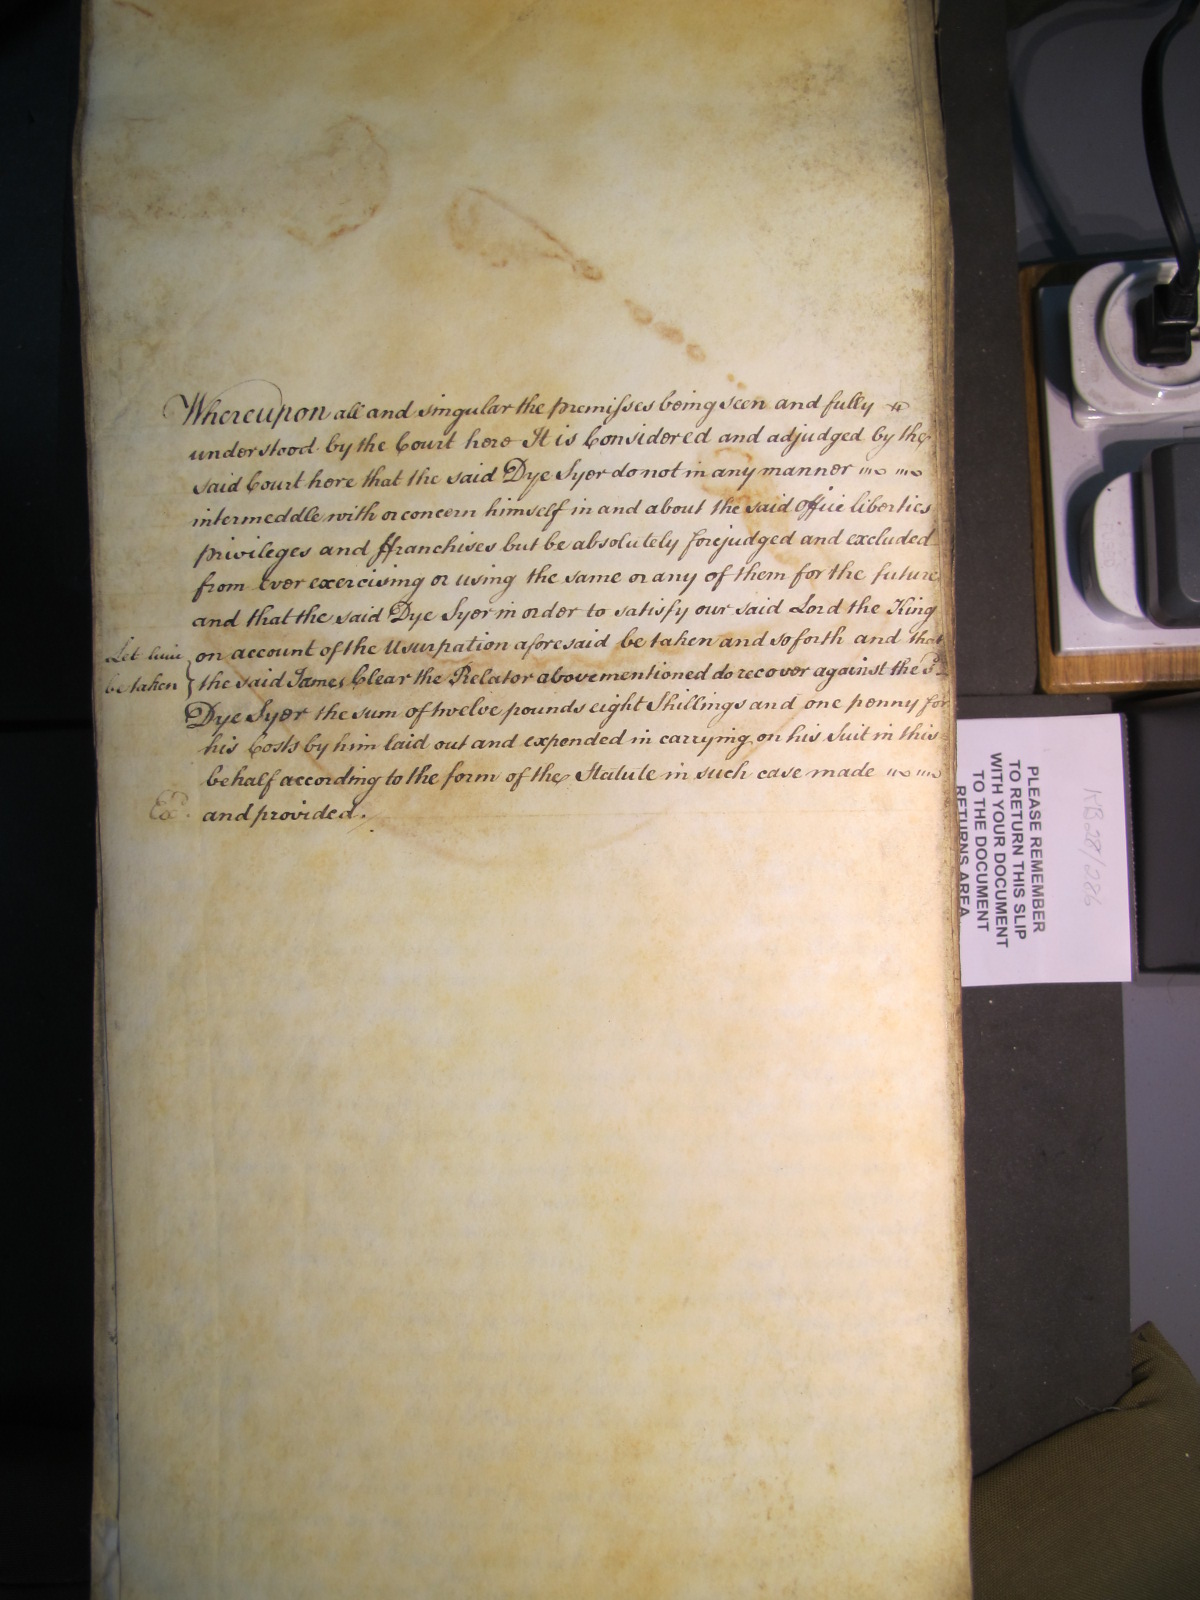 Whereupon all and singular the premisses being seen and fully
understood by the Court here It is Considered and adjudged by the
said Court here that the said Dye Syer do not in any manner
intermeddle with or concern himself in and about the said office liberties
privileges and ffranchises but be absolutely forejudged and excluded
from ever exercising or using the same or any of them for the future
and that the said Dye Syer in order to satisfy our said Lord the King
Let him
be taken
on account of the Usurpation aforesaid be taken and so forth and that
the said James Clear the Relator abovementioned do recover against the sd
Dye Syer the sum of twelve pounds eight Shillings and one penny for
his Costs by him laid out and expended in carrying on his Suit in this
behalf according to the form of the Statute in such case made
and provided.
PLEASE REMEMBER
TO RETURN THIS SLIP
WITH YOUR DOCUMENT
TO THE DOCUMENT
RETURNS AREA
KB28/286